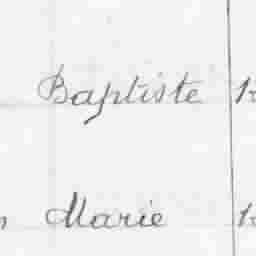 Baptiste
Marie